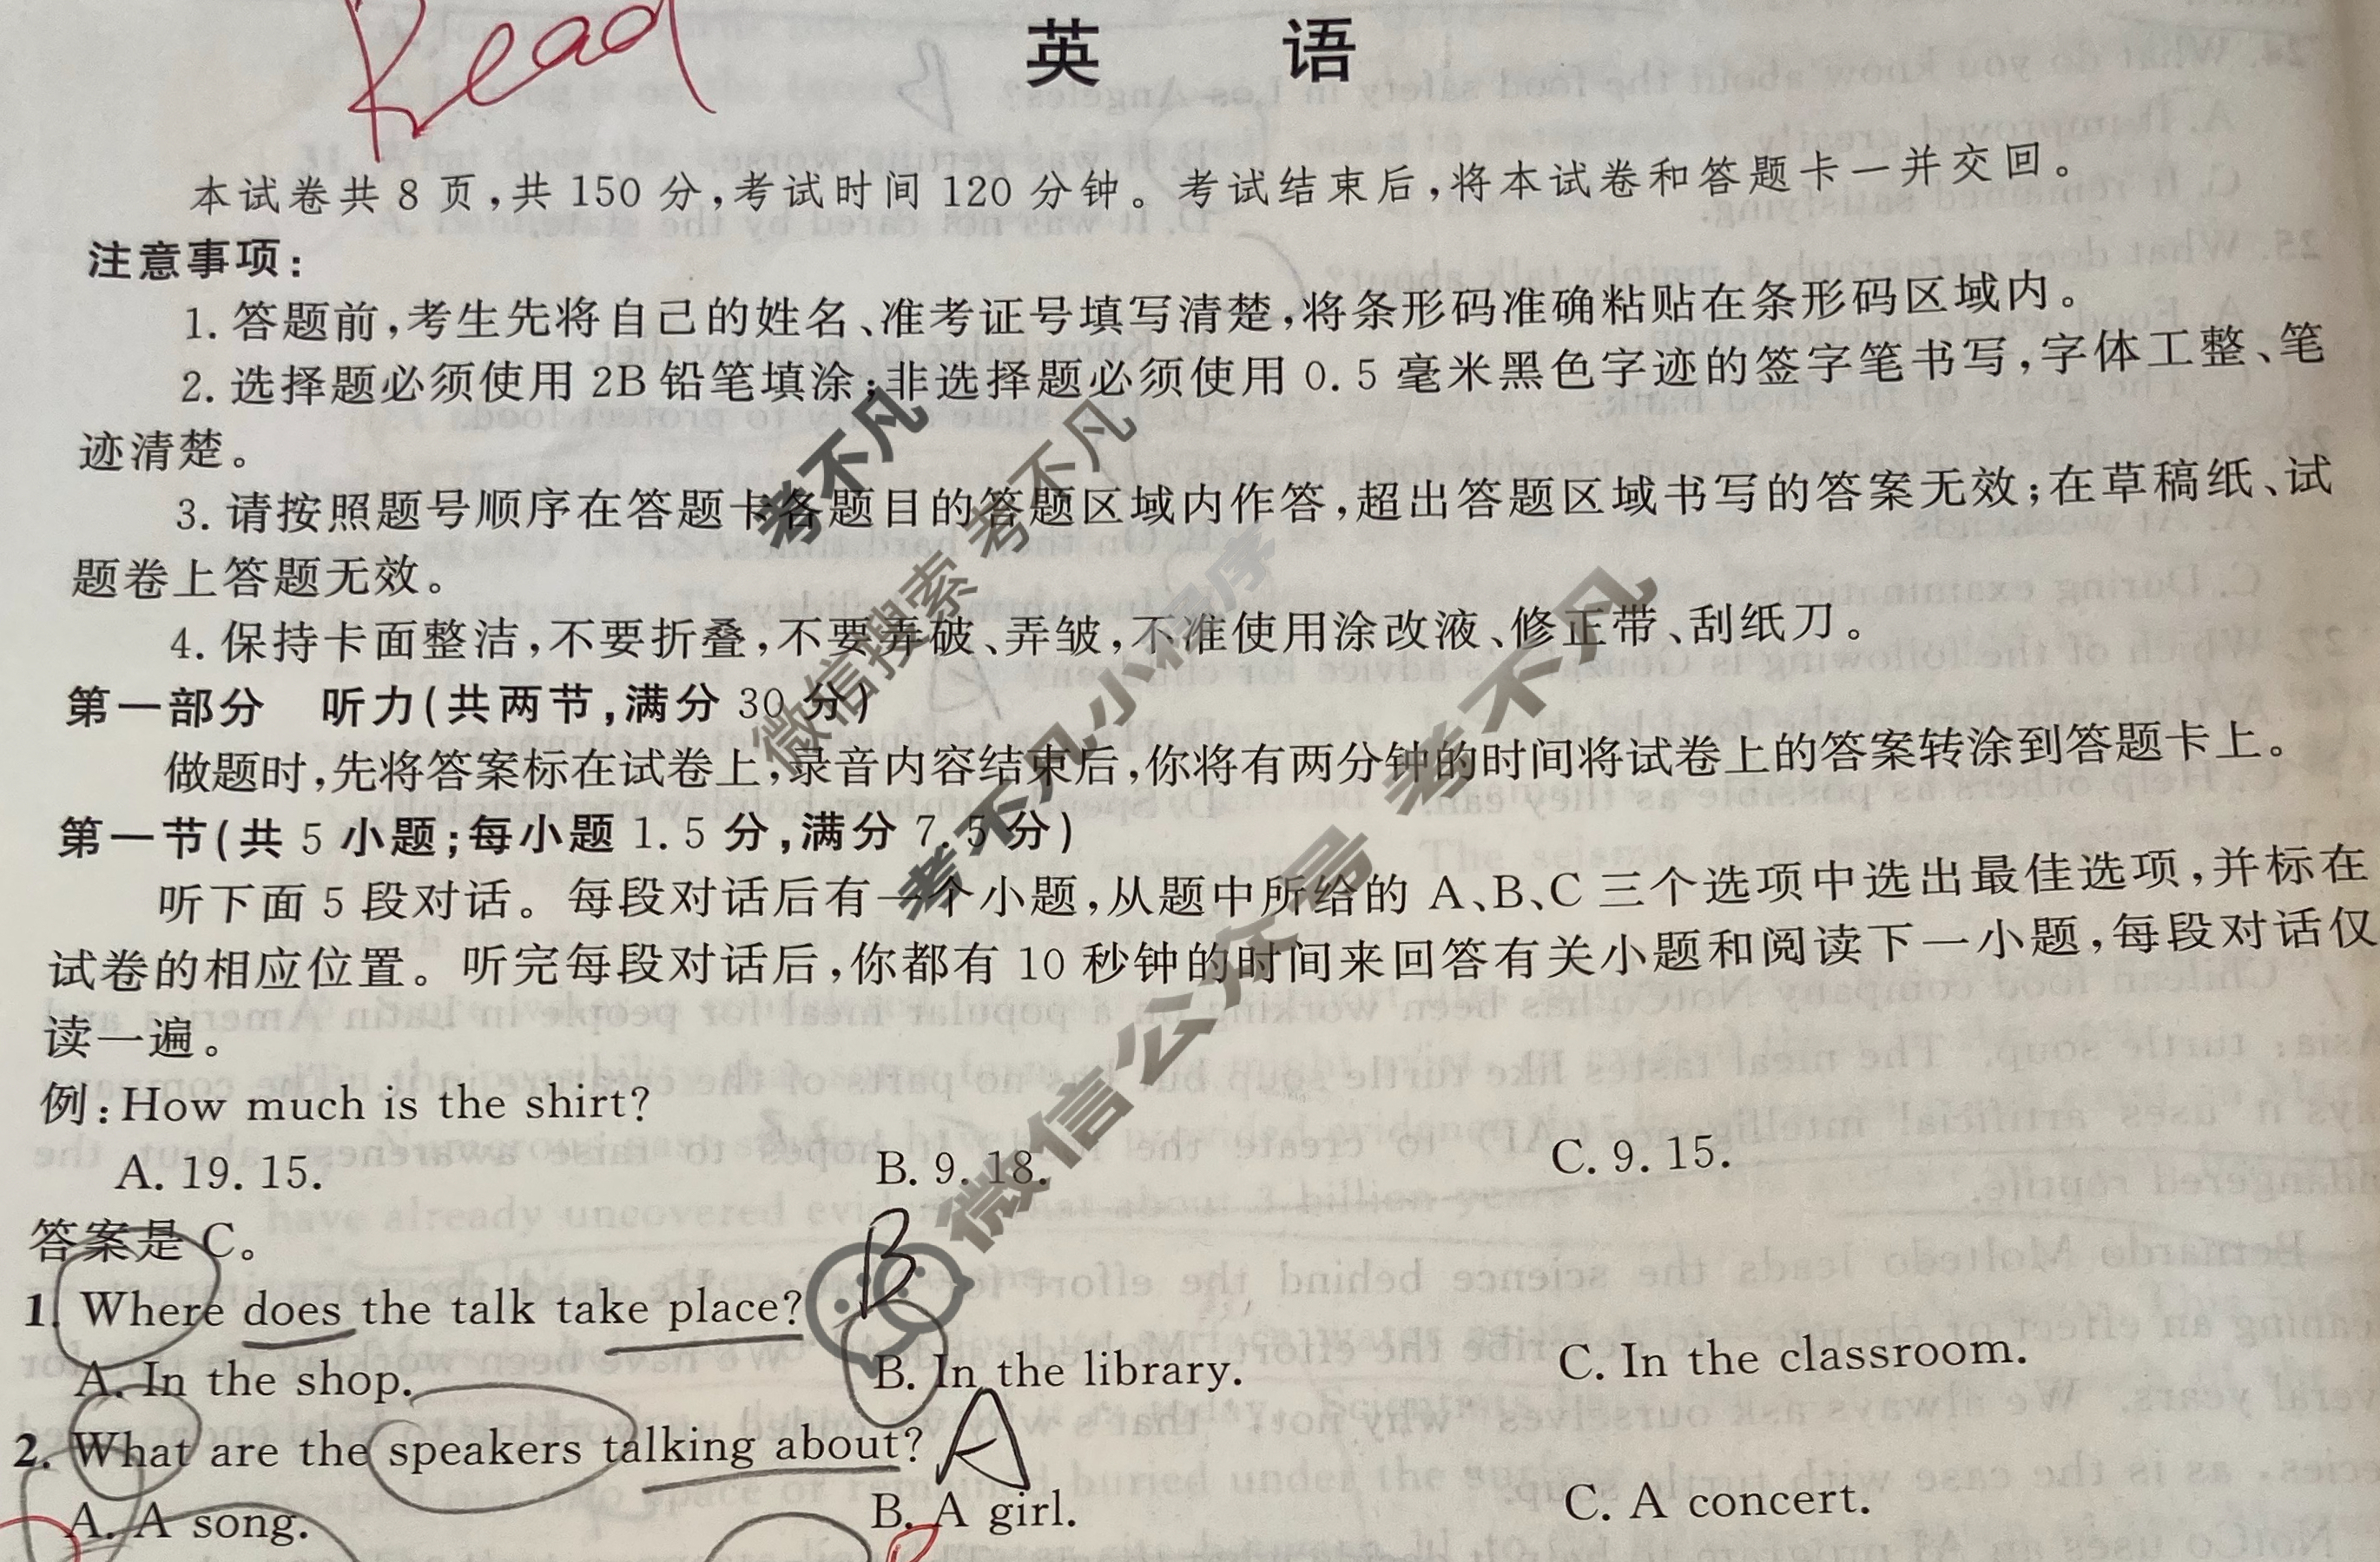 Read
英 语
本试卷共 8 页,共 150 分,考试时间 120 分钟。考试结束后,将本试卷和答题卡一并交回。
注意事项:
1. 答题前,考生先将自己的姓名、准考证号填写清楚,将条形码准确粘贴在条形码区域内。
2. 选择题必须使用 2B 铅笔填涂;非选择题必须使用 0.5 毫米黑色字迹的签字笔书写,字体工整、笔
迹清楚。
3. 请按照题号顺序在答题卡各题目的答题区域内作答,超出答题区域书写的答案无效;在草稿纸、试
题卷上答题无效。
4. 保持卡面整洁,不要折叠,不要弄破、弄皱,不准使用涂改液、修正带、刮纸刀。
第一部分 听力(共两节,满分 30 分)
做题时,先将答案标在试卷上,录音内容结束后,你将有两分钟的时间将试卷上的答案转涂到答题卡上。
第一节(共 5 小题;每小题 1.5 分,满分 7.5 分)
听下面 5 段对话。每段对话后有一个小题,从题中所给的 A、B、C 三个选项中选出最佳选项,并标在
试卷的相应位置。听完每段对话后,你都有 10 秒钟的时间来回答有关小题和阅读下一小题,每段对话仅
读一遍。
例:How much is the shirt?
A. 19. 15. B. 9. 18. C. 9. 15.
答案是 C。
1. Where does the talk take place? B
A. In the shop. B. In the library. C. In the classroom.
2. What are the speakers talking about? A
A. A song. B. A girl. C. A concert.
考不凡
微信搜索 考不凡
考不凡小程序
微信公众号 考不凡